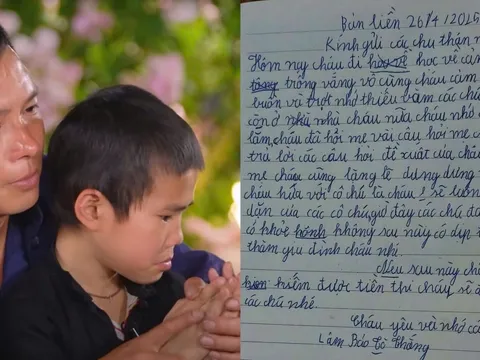 Bản liền 26/4/2025
Kính gửi các chu thận
Hôm nay cháu đi học về cảm
trống vắng vô cùng cháu cảm
buồn và trợt nhớ thiếu vắm các chú
còn ở nhà cháu nữa cháu nhớ
lắm, cháu đã hỏi mẹ vài câu hỏi mẹ
trả lời các câu hỏi đề xuất của cháu
mẹ cháu cũng lặng lẽ dưng dưng
cháu hứa với cô chú là cháu sẽ luôn
dặn của các cô chú, giờ đây các chú
có khoẻ không sau này có dịp
thăm gia đình cháu nhí.
Nếu sau này chá
hiếm được tiền thì cháu sẽ
các chú nhé.
Cháu yêu và nhớ cá
Lâm Bảo Thắng